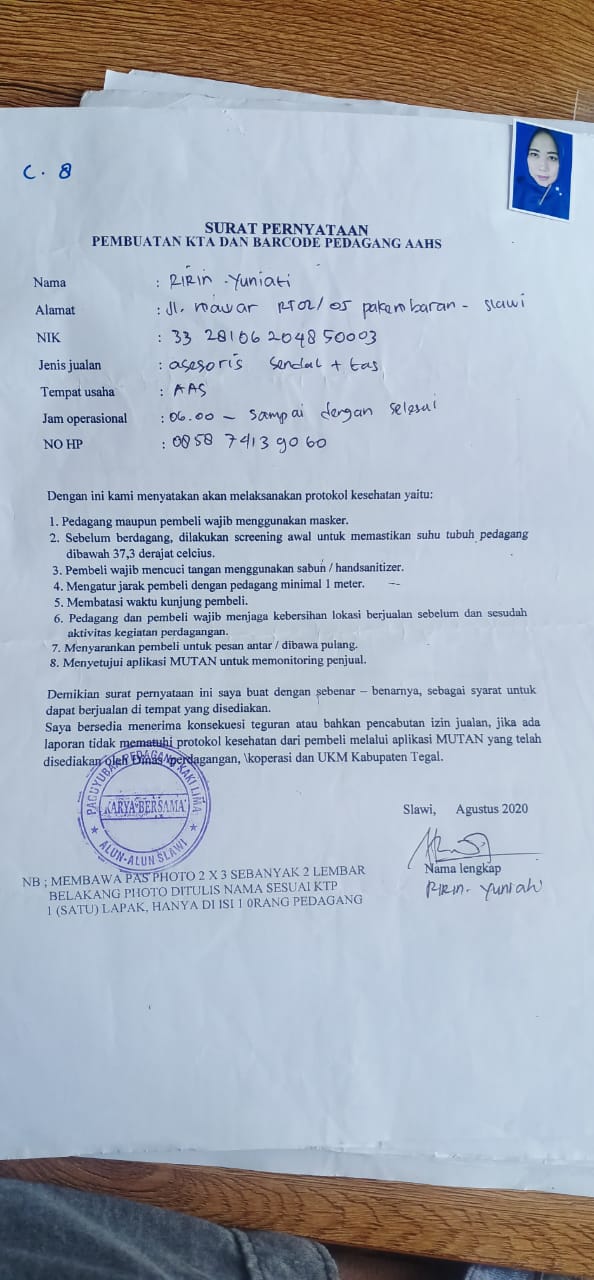 C. 8
SURAT PERNYATAAN
PEMBUATAN KTA DAN BARCODE PEDAGANG AAHS
Nama : RIRIN .Yuniati
Alamat : Jl. mawar RT02/05 pakembaran - slawi
NIK : 33 28106 204850003
Jenis jualan : asesoris sendal + tas
Tempat usaha : AAS
Jam operasional : 06.00 - sampai dengan selesai
NO HP : 0858 7413 9060
Dengan ini kami menyatakan akan melaksanakan protokol kesehatan yaitu:
1. Pedagang maupun pembeli wajib menggunakan masker.
2. Sebelum berdagang, dilakukan screening awal untuk memastikan suhu tubuh pedagang
dibawah 37,3 derajat celcius.
3. Pembeli wajib mencuci tangan menggunakan sabun / handsanitizer.
4. Mengatur jarak pembeli dengan pedagang minimal 1 meter.
5. Membatasi waktu kunjung pembeli.
6. Pedagang dan pembeli wajib menjaga kebersihan lokasi berjualan sebelum dan sesudah
aktivitas kegiatan perdagangan.
7. Menyarankan pembeli untuk pesan antar / dibawa pulang.
8. Menyetujui aplikasi MUTAN untuk memonitoring penjual.
Demikian surat pernyataan ini saya buat dengan sebenar – benarnya, sebagai syarat untuk
dapat berjualan di tempat yang disediakan.
Saya bersedia menerima konsekuesi teguran atau bahkan pencabutan izin jualan, jika ada
laporan tidak mematuhi protokol kesehatan dari pembeli melalui aplikasi MUTAN yang telah
disediakan oleh Dinas perdagangan, \koperasi dan UKM Kabupaten Tegal.
PAGUYUBAN PEDAGANG KAKI LIMA
KARYA BERSAMA
ALUN-ALUN SLAWI
Slawi, Agustus 2020
Nama lengkap
RIRIN. Yuniati
NB ; MEMBAWA PAS PHOTO 2 X 3 SEBANYAK 2 LEMBAR
BELAKANG PHOTO DITULIS NAMA SESUAI KTP
1 (SATU) LAPAK, HANYA DI ISI 1 0RANG PEDAGANG